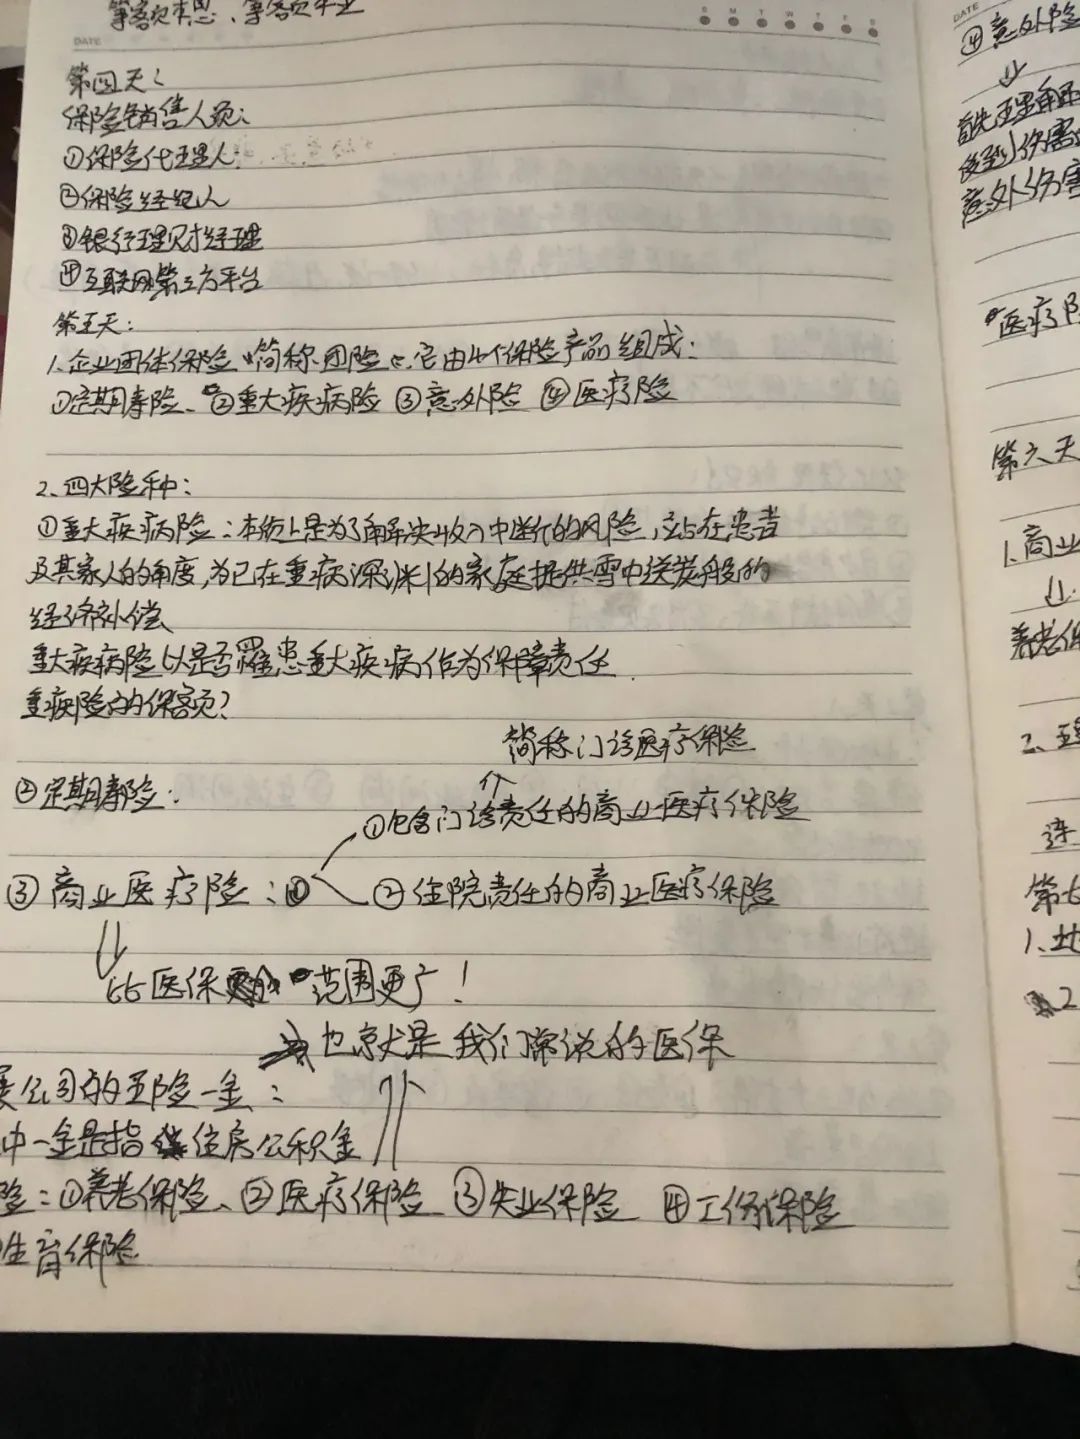 DATE
S M T W T F S
第四天:
保险销售人员:
①保险代理人:
②保险经纪人
③银行理财经理
④互联网第三方平台
第五天:
1.企业团体保险"简称团险",它由4个保险产品组成:
①定期寿险、②重大疾病险 ③意外险 ④医疗险
2.四大险种:
①重大疾病险:本质上是为了解决收入中断的风险,站在患者
及其家人的角度,为已在重病深渊的家庭提供雪中送炭般的
经济补偿
重大疾病险以是否罹患重大疾病作为保障责任
重疾险的保额?
②定期寿险:
简称门诊医疗保险
①包含门诊责任的商业医疗保险
③商业医疗险:
②住院责任的商业医疗保险
比医保 范围更广!
也就是我们常说的医保
公司的五险一金:
中一金是指 住房公积金
险:①养老保险、②医疗保险 ③失业保险 ④工伤保险
生育保险
DATE
④意外险
首先理解
受到伤害
意外伤害
医疗
第六天
1.商业
养老保
2.
第七
1.
2